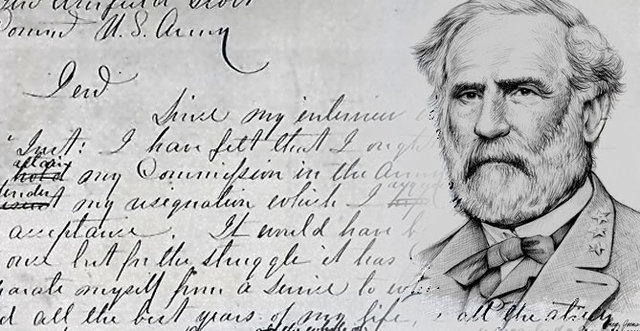 Winfield Scott
Comnd U.S. Army
Genl
Since my interview
Inst: I have felt that I ought
my Commission in the Army
my resignation which I
acceptance. It would have b
once but for the struggle it has
parate myself from a service to
d all the best years of my life, & all the